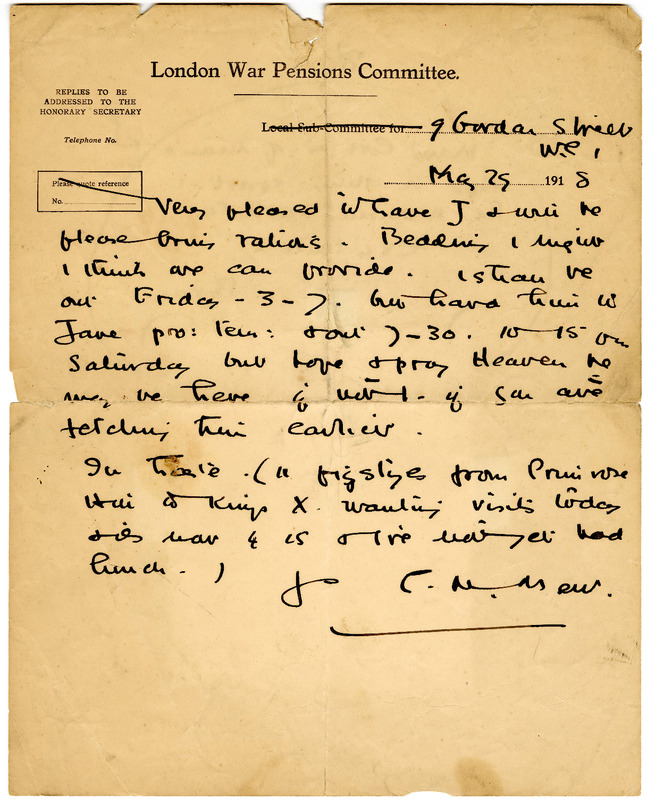 London War Pensions Committee.
REPLIES TO BE
ADDRESSED TO THE
HONORARY SECRETARY
Telephone No.
Local Sub-Committee for 9 Gordon Street
W.C 1
May 29 1918
Please quote reference
No.
Very pleased to have J & will he
please bring rations. Bedding I
I think we can provide. I shall be
out Friday - 3 - 7. but hand him to
Jane pro: tem: & out 7-30. 10-15 on
Saturday but hope & pray Heaven he
may be here if not I. if you are
fetching him earlier.
In haste. (11 pigstyes from Primrose
Hill to Kings X. wanting visits today
& it's now 4 15 & I've not yet had
lunch.)
C. M. Mew.